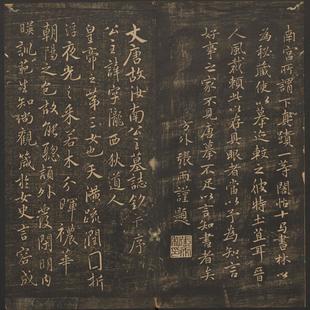 南宮所謂下真蹟一等閣帖十書林以
為秘藏使以摹迹較之彼特土苴耳晉
人風裁賴此以存具眼者當以予為知言
好事之家不見唐摹不足以言知書者矣
方外張雨謹題
大唐故汝南公主墓誌銘并序
公主諱字隴西狄道人
皇帝之第三女也天潢疏潤圓折
浮夜光之采若木分暉穠華
朝陽之色故能聰穎外發閑明內
暎訓範生知尚觀箴於女史言容成